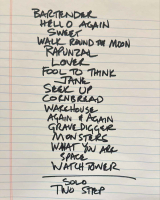 BARTENDER
HELLO AGAIN
SWEET
WALK ROUND THE MOON
RAPUNZAL
LOVER
FOOL TO THINK
JANE
SEEK UP
CORNBREAD
WAREHOUSE
AGAIN & AGAIN
GRAVEDIGGER
MONSTERS
WHAT YOU ARE
SPACE
WATCHTOWER
SOLO
TWO STEP